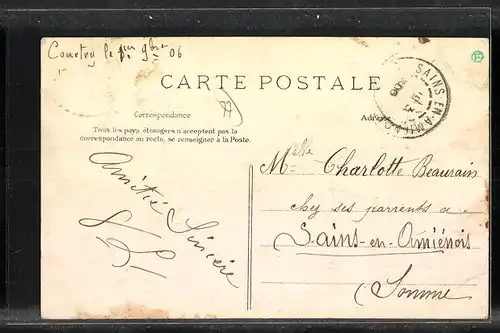 Courtry le 1er 9bre 06
CARTE POSTALE
Correspondance
Adres
Tous les pays étrangers n'acceptent pas la
correspondance au recto, se renseigner à la Poste.
SAINS-EN-AMIÉNOIS
Amitié Sincère
Melle Charlotte Beaurain
chez ses parrents a
Sains-en-Amiénois
Somme